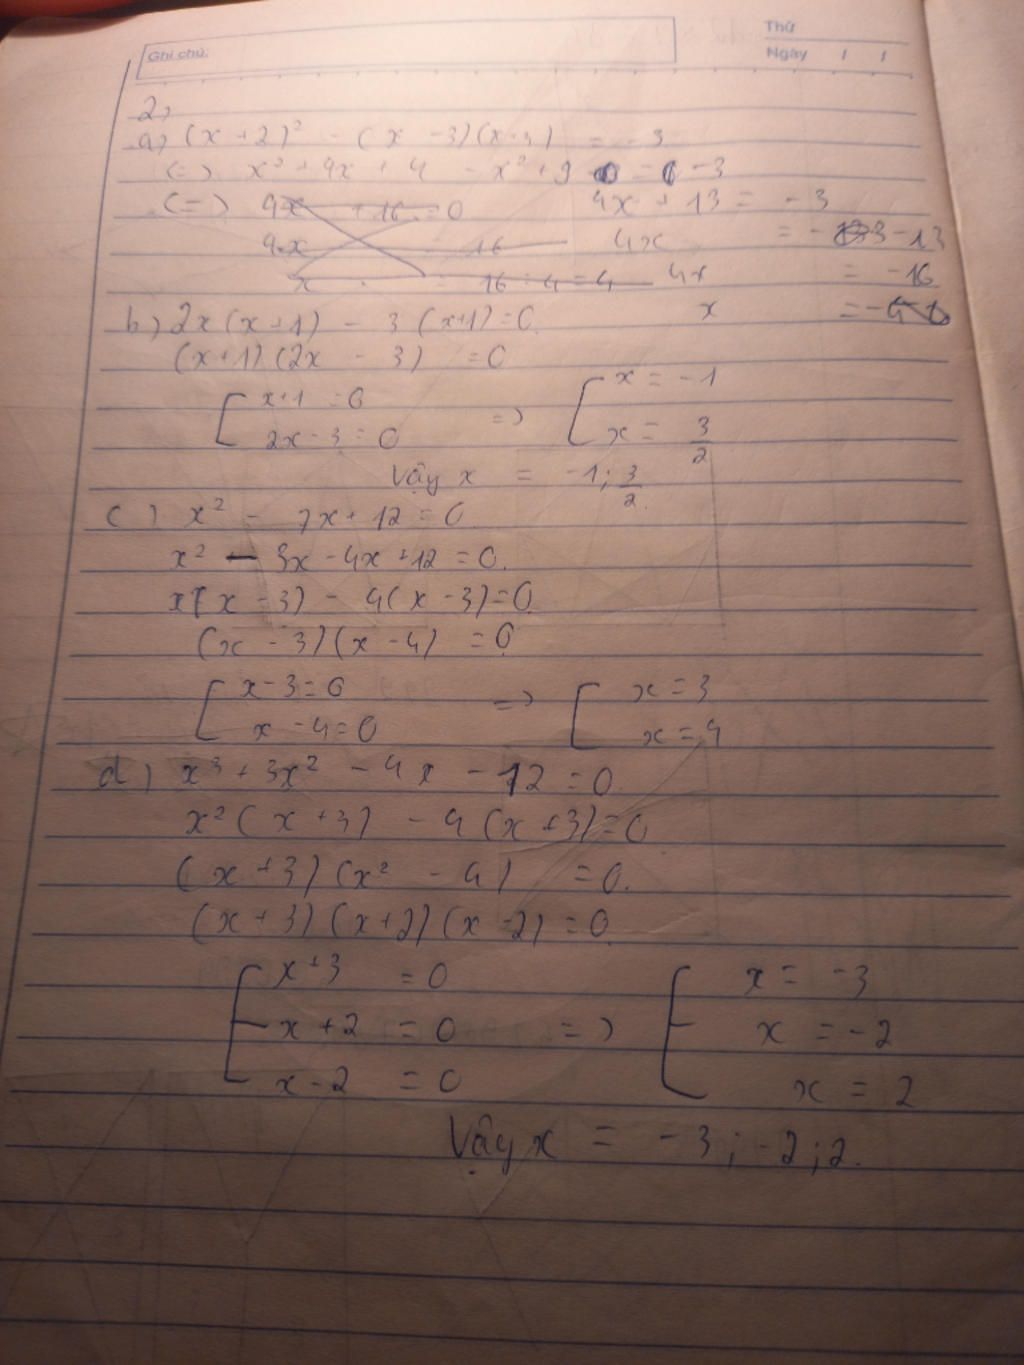 Ghi chú:
Thứ
Ngày / /
2,
a, (x + 2)² - (x - 3)(x+3) = -3
(=) x² + 4x + 4 - x² + 9 = -3
(=) 4x + 16 = 0 4x + 13 = -3
4x = 16 4x = -3 - 13
x = 16 : 4 = 4 4x = -16
x = -4
b) 2x(x+1) - 3(x+1)=0
(x+1)(2x - 3) = 0
[ x+1 = 0 => [ x = -1
2x - 3 = 0 x = 3/2
Vậy x = -1; 3/2.
c) x² - 7x + 12 = 0
x² - 3x - 4x + 12 = 0.
x(x - 3) - 4(x - 3) = 0
(x - 3)(x - 4) = 0
[ x - 3 = 0 => [ x = 3
x - 4 = 0 x = 4
d) x³ + 3x² - 4x - 12 = 0.
x²(x + 3) - 4(x + 3) = 0
(x + 3)(x² - 4) = 0.
(x + 3)(x + 2)(x - 2) = 0
[ x + 3 = 0 [ x = -3
x + 2 = 0 => x = -2
x - 2 = 0 x = 2
Vậy x = -3; -2; 2.